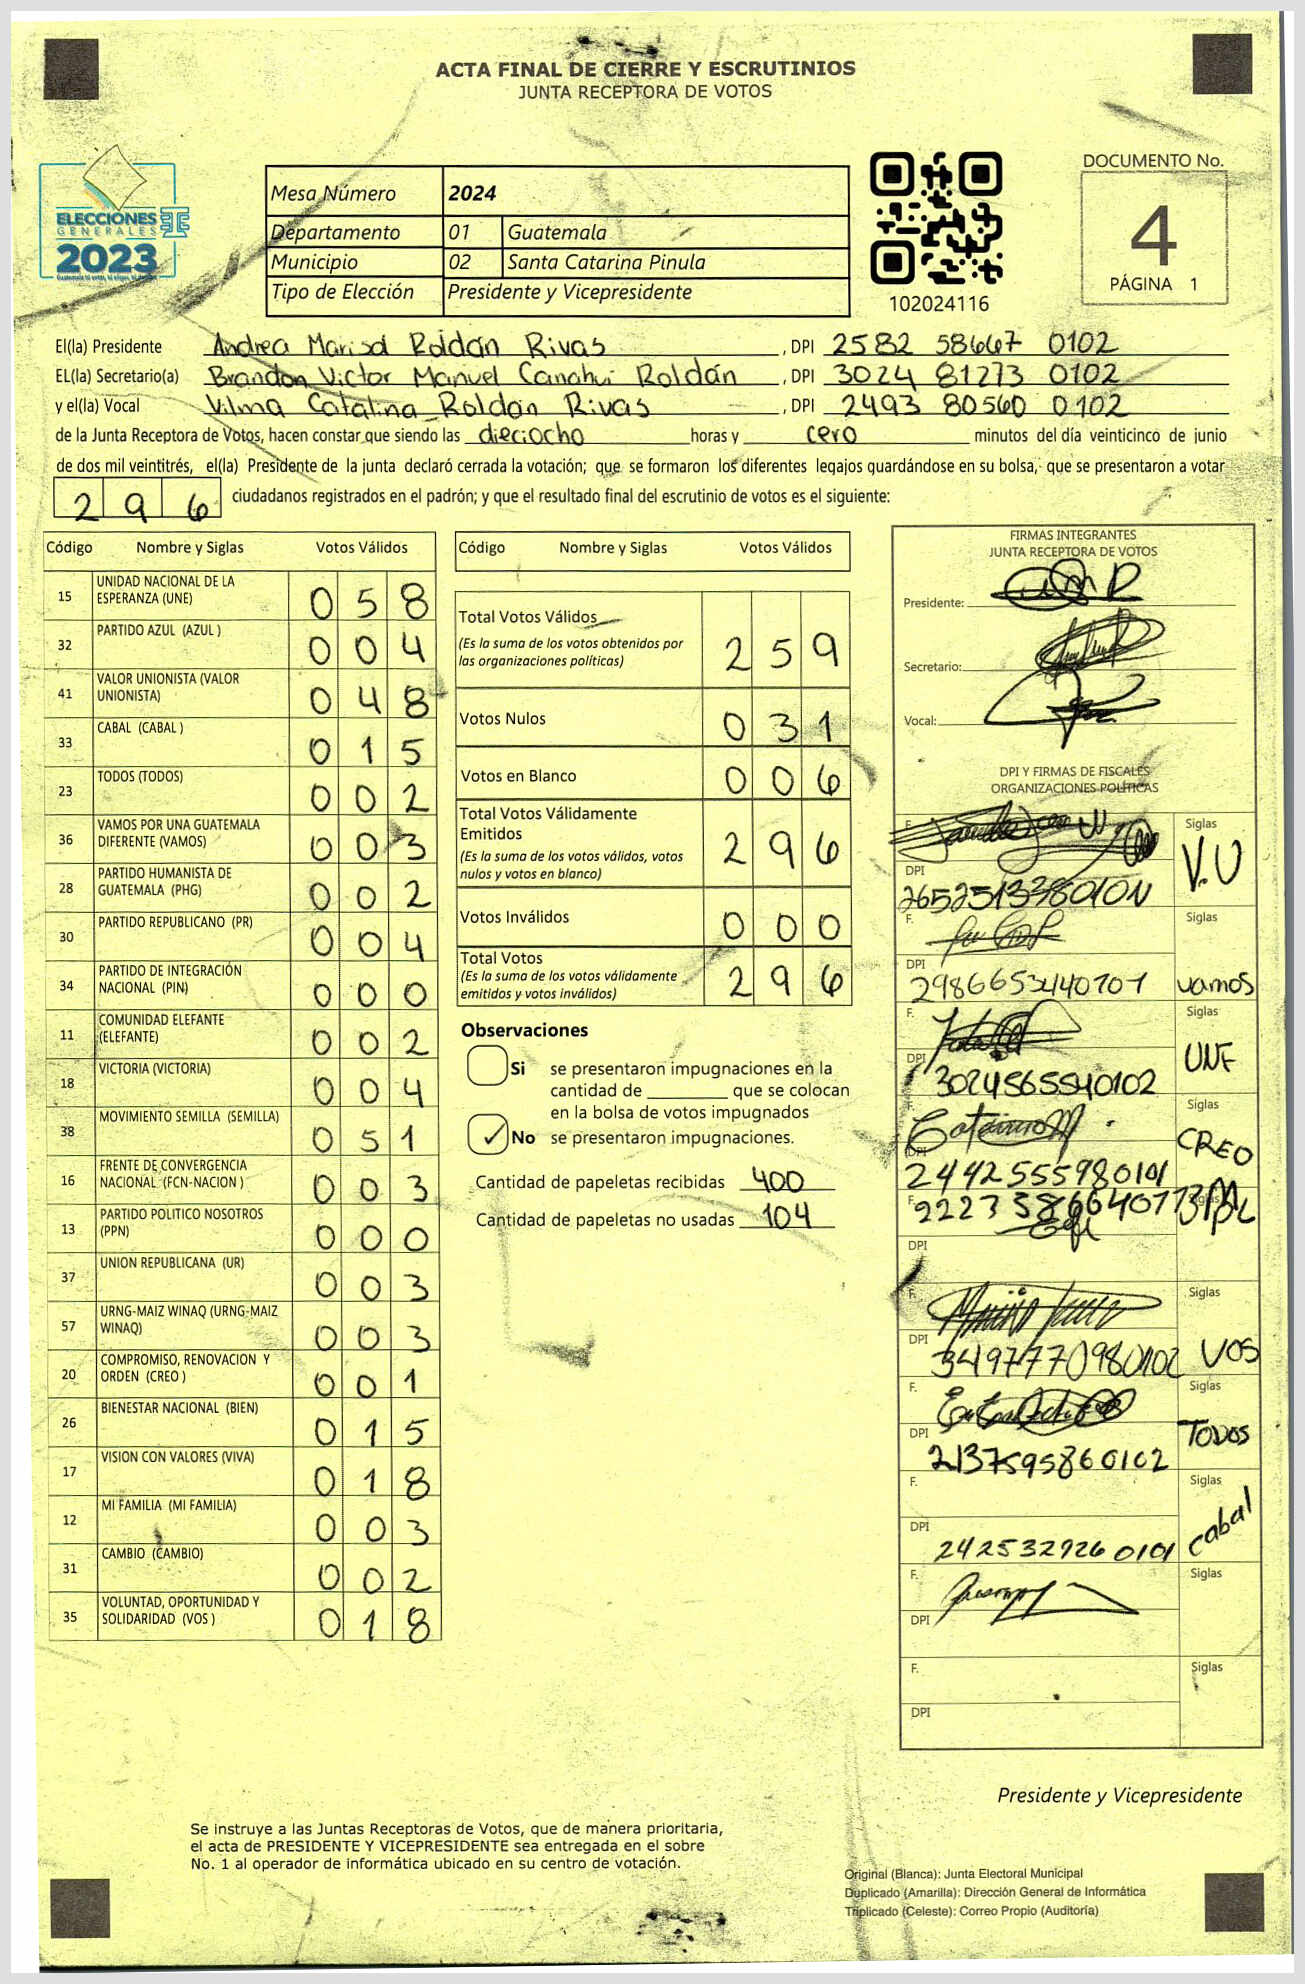 ACTA FINAL DE CIERRE Y ESCRUTINIOS
JUNTA RECEPTORA DE VOTOS
ELECCIONES
GENERALES
2023
Mesa Número 2024
Departamento 01 Guatemala
Municipio 02 Santa Catarina Pinula
Tipo de Elección Presidente y Vicepresidente
102024116
DOCUMENTO No.
4
PÁGINA 1
El(la) Presidente Andrea Marisol Roldán Rivas , DPI 2582 58667 0102
EL(la) Secretario(a) Brandon Victor Manuel Canahui Roldán , DPI 3024 81273 0102
y el(la) Vocal Vilma Catalina Roldán Rivas , DPI 2493 80560 0102
de la Junta Receptora de Votos, hacen constar que siendo las dieciocho horas y cero minutos del día veinticinco de junio
de dos mil veintitrés, el(la) Presidente de la junta declaró cerrada la votación; que se formaron los diferentes legajos guardándose en su bolsa, que se presentaron a votar
296 ciudadanos registrados en el padrón; y que el resultado final del escrutinio de votos es el siguiente:
Código Nombre y Siglas Votos Válidos
15 UNIDAD NACIONAL DE LA ESPERANZA (UNE) 058
32 PARTIDO AZUL (AZUL ) 004
41 VALOR UNIONISTA (VALOR UNIONISTA) 048
33 CABAL (CABAL ) 015
23 TODOS (TODOS) 002
36 VAMOS POR UNA GUATEMALA DIFERENTE (VAMOS) 003
28 PARTIDO HUMANISTA DE GUATEMALA (PHG) 002
30 PARTIDO REPUBLICANO (PR) 004
34 PARTIDO DE INTEGRACIÓN NACIONAL (PIN) 000
11 COMUNIDAD ELEFANTE (ELEFANTE) 002
18 VICTORIA (VICTORIA) 004
38 MOVIMIENTO SEMILLA (SEMILLA) 051
16 FRENTE DE CONVERGENCIA NACIONAL (FCN-NACION ) 003
13 PARTIDO POLITICO NOSOTROS (PPN) 000
37 UNION REPUBLICANA (UR) 003
57 URNG-MAIZ WINAQ (URNG-MAIZ WINAQ) 003
20 COMPROMISO, RENOVACION Y ORDEN (CREO ) 001
26 BIENESTAR NACIONAL (BIEN) 015
17 VISION CON VALORES (VIVA) 018
12 MI FAMILIA (MI FAMILIA) 003
31 CAMBIO (CAMBIO) 002
35 VOLUNTAD, OPORTUNIDAD Y SOLIDARIDAD (VOS ) 018
Código Nombre y Siglas Votos Válidos
Total Votos Válidos 259
(Es la suma de los votos obtenidos por
las organizaciones políticas)
Votos Nulos 031
Votos en Blanco 006
Total Votos Válidamente
Emitidos 296
(Es la suma de los votos válidos, votos
nulos y votos en blanco)
Votos Inválidos 000
Total Votos 296
(Es la suma de los votos válidamente
emitidos y votos inválidos)
Observaciones
Si se presentaron impugnaciones en la
cantidad de ________ que se colocan
en la bolsa de votos impugnados
✓ No se presentaron impugnaciones.
Cantidad de papeletas recibidas 400
Cantidad de papeletas no usadas 104
FIRMAS INTEGRANTES
JUNTA RECEPTORA DE VOTOS
Presidente:
Secretario:
Vocal:
DPI Y FIRMAS DE FISCALES
ORGANIZACIONES POLÍTICAS
F. Siglas V.U
DPI
F. Siglas vamos
DPI
F. Siglas UNE
DPI 3024565540102
F. Siglas CREO
DPI 2442555980101
F. Siglas
DPI
F. Siglas VOS
DPI 3497770980102
F. Siglas TODOS
DPI 2137595860102
F. Siglas cabal
DPI 2425329260101
F. Siglas
DPI
F. Siglas
DPI
Presidente y Vicepresidente
Se instruye a las Juntas Receptoras de Votos, que de manera prioritaria,
el acta de PRESIDENTE Y VICEPRESIDENTE sea entregada en el sobre
No. 1 al operador de informática ubicado en su centro de votación.
Original (Blanca): Junta Electoral Municipal
Duplicado (Amarilla): Dirección General de Informática
Triplicado (Celeste): Correo Propio (Auditoría)